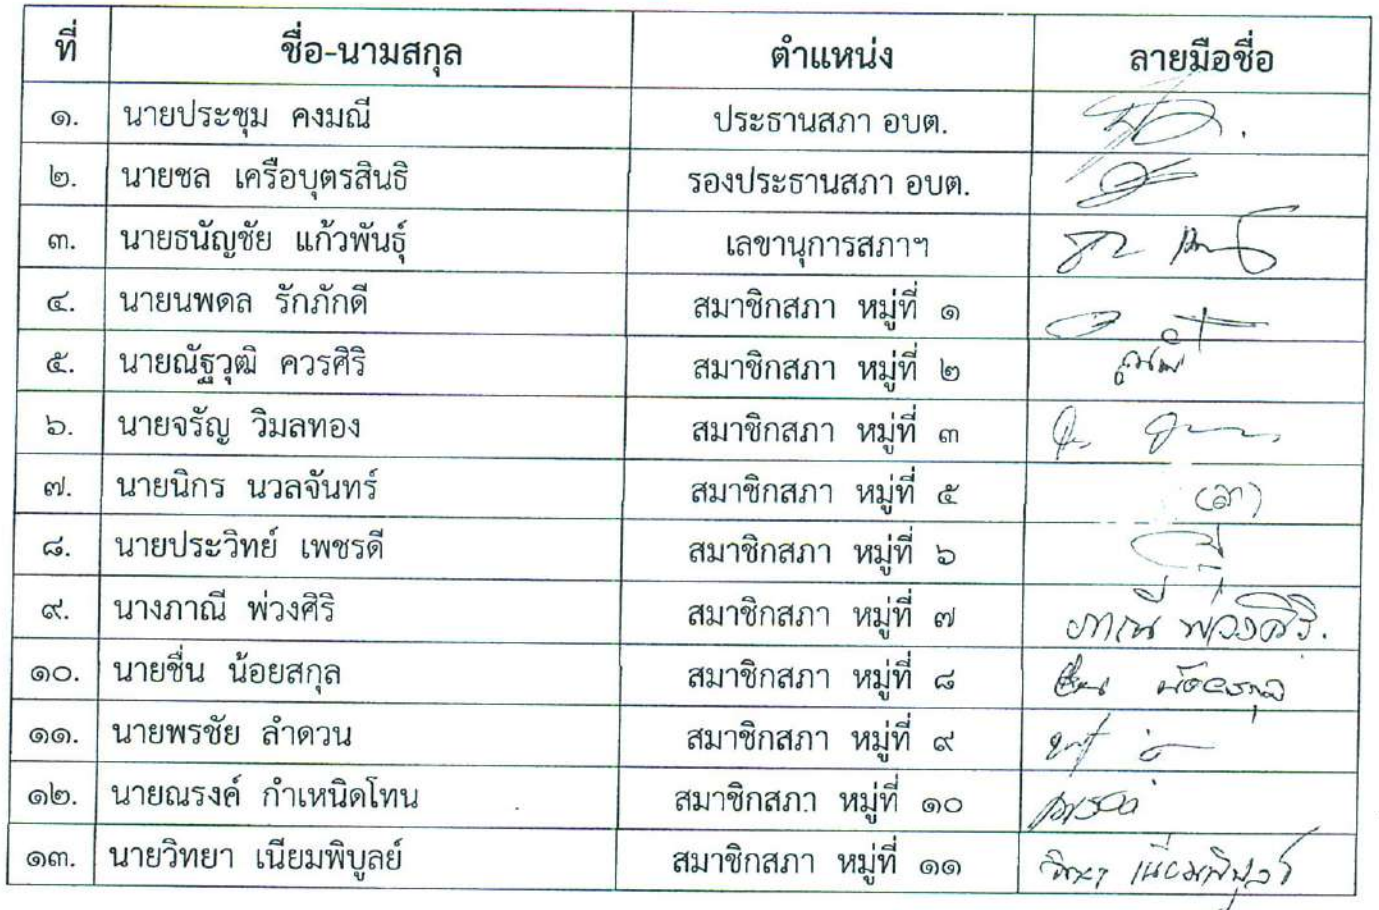 ที่ ชื่อ-นามสกุล ตำแหน่ง ลายมือชื่อ
๑. นายประชุม คงมณี ประธานสภา อบต.
๒. นายชล เครือบุตรสินธิ รองประธานสภา อบต.
๓. นายธนัญชัย แก้วพันธุ์ เลขานุการสภาฯ
๔. นายนพดล รักภักดี สมาชิกสภา หมู่ที่ ๑
๕. นายณัฐวุฒิ ควรศิริ สมาชิกสภา หมู่ที่ ๒
๖. นายจรัญ วิมลทอง สมาชิกสภา หมู่ที่ ๓
๗. นายนิกร นวลจันทร์ สมาชิกสภา หมู่ที่ ๕ (ลา)
๘. นายประวิทย์ เพชรดี สมาชิกสภา หมู่ที่ ๖
๙. นางภาณี พ่วงศิริ สมาชิกสภา หมู่ที่ ๗ ภาณี พ่วงศิริ.
๑๐. นายชื่น น้อยสกุล สมาชิกสภา หมู่ที่ ๘ ชื่น น้อยสกุล
๑๑. นายพรชัย ลำดวน สมาชิกสภา หมู่ที่ ๙
๑๒. นายณรงค์ กำเหนิดโทน สมาชิกสภา หมู่ที่ ๑๐ ณรงค์
๑๓. นายวิทยา เนียมพิบูลย์ สมาชิกสภา หมู่ที่ ๑๑ วิทยา เนียมพิบูลย์